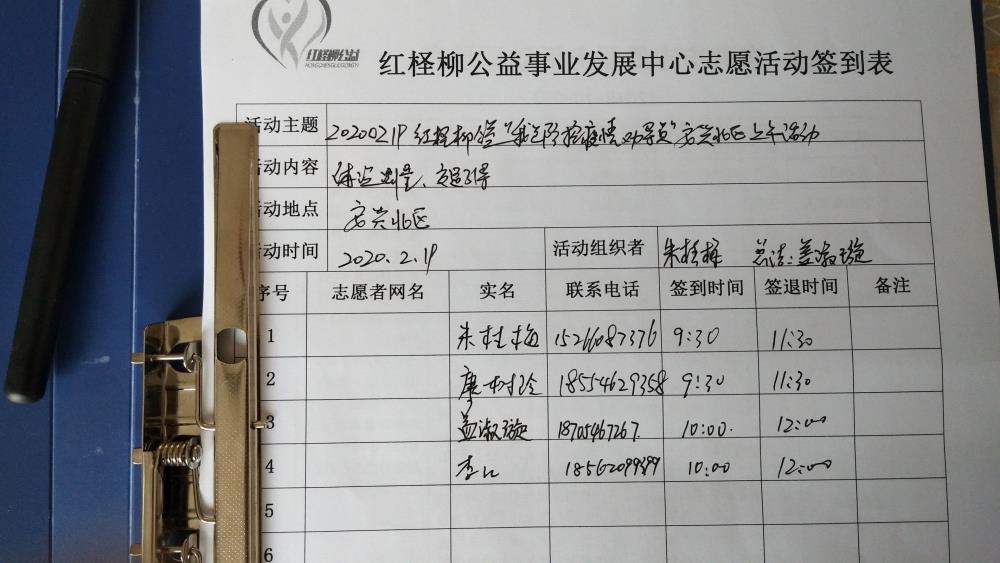 红柽柳公益
HONGCHENGLIUGONGYI
红柽柳公益事业发展中心志愿活动签到表
活动主题 20200219 红柽柳公益"我是防控疫情劝导员"安兴北区上午活动
活动内容 体温测量、交通引导
活动地点 安兴北区
活动时间 2020.2.19 活动组织者 朱桂梅 总结:盖淑璇
序号 志愿者网名 实名 联系电话 签到时间 签退时间 备注
1 朱桂梅 15266087376 9:30 11:30
2 廖树玲 18554629358 9:30 11:30
3 盖淑璇 18705467267 10:00. 12:00
4 李 18562099399 10:00 12:00
5
6